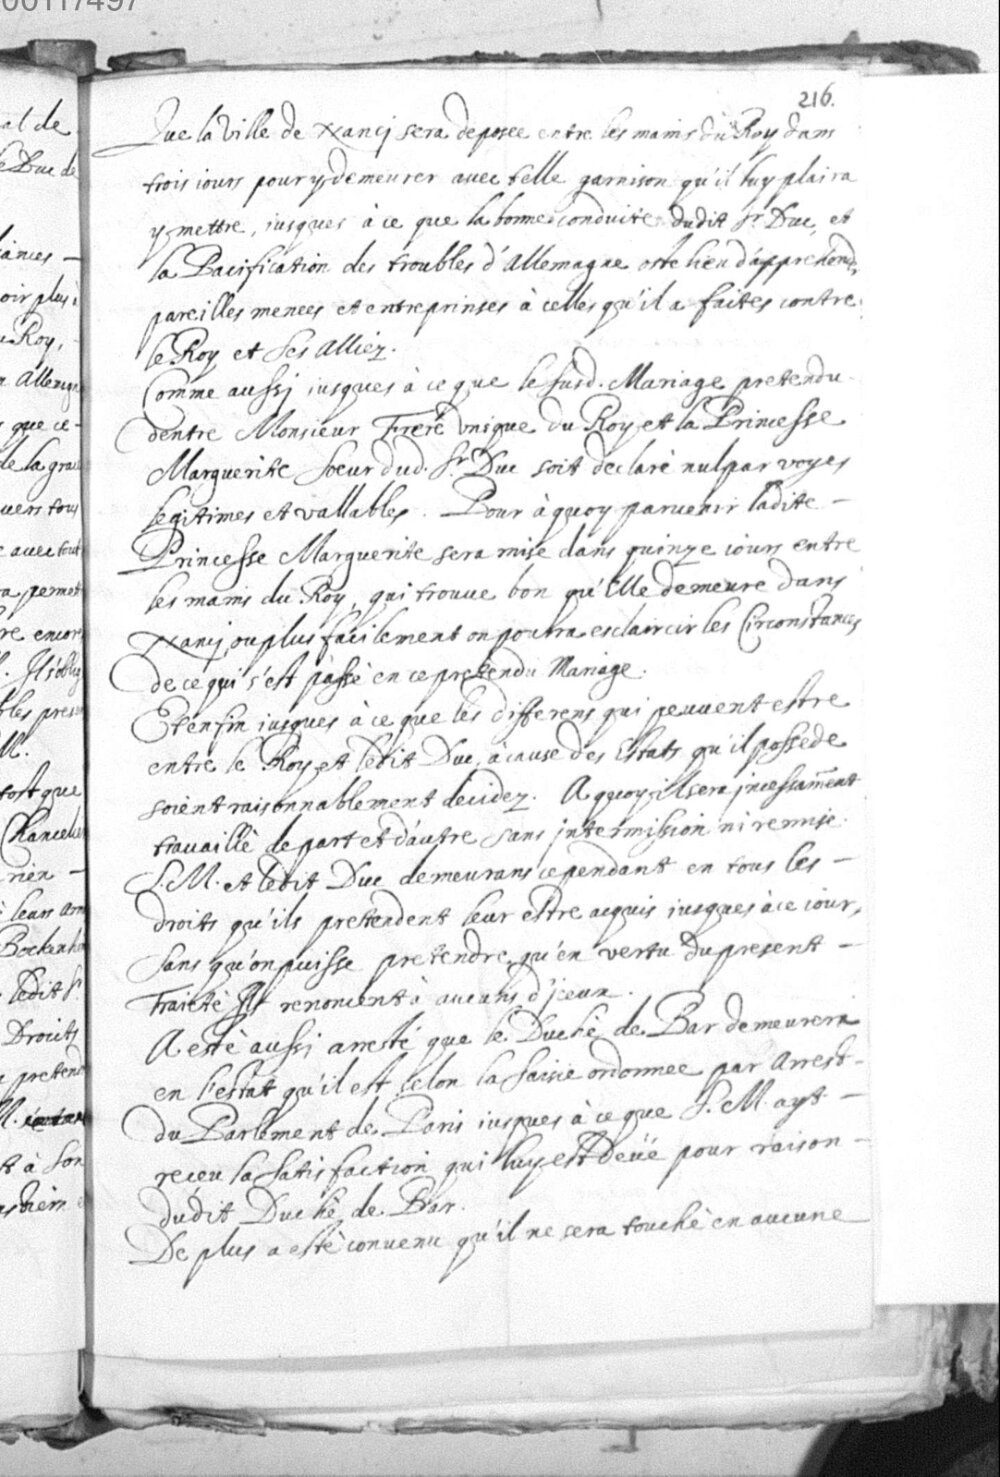 00117497
216.
Que la Ville de Nancj sera deposée entre les mains du Roy dans
trois iours pour y demeurer avec telle garnison qu'il luy plaira
y mettre, iusques à ce que la bonne conduite dudit Sr. Duc, et
la Pacification des troubles d'Allemagne oste lieu d'apprehend.
pareilles menees et entreprinses à celles qu'il a faites contre
le Roy et ses Alliez.
Comme aussj iusques à ce que le susd. Mariage pretendu
dentre Monsieur Frere unique du Roy et la Princesse
Marguerite Soeur dud. Sr. Duc soit declaré nul par voyes
legitimes et vallables. Pour à quoy parvenir ladite –
Princesse Marguerite sera mise dans quinze iours entre
les mains du Roy, qui trouve bon qu'Elle demeure dans
Nancj, ou plus facilement on pourra esclaircir les Circonstances
de ce qui s'est passé en ce pretendu Mariage.
Et enfin iusques à ce que les differens qui peuvent estre
entre le Roy et ledit Duc, à cause des Estats qu'il possede
soient raisonnablement decidez. A quoy il sera jncessam̃ent
travaillé de part et d'autre sans jntermission ni remise.
S. M. et ledit Duc demeurans cependant en tous les –
droits qu'ils pretendent leur estre acquis iusques à ce iour,
sans qu'on puisse pretendre qu'en vertu du present –
Traité Ils renoncent à aucuns d'jceux.
A esté aussj arresté que le Duché de Bar demeurera
en l'estat qu'il est selon la saisie ordonnee par Arrest –
du Parlement de Paris iusques à ce que S. M. ayt –
receu la satisfaction qui luy est deüe pour raison –
dudit Duché de Bar.
De plus a esté convenu qu'il ne sera touché en aucune